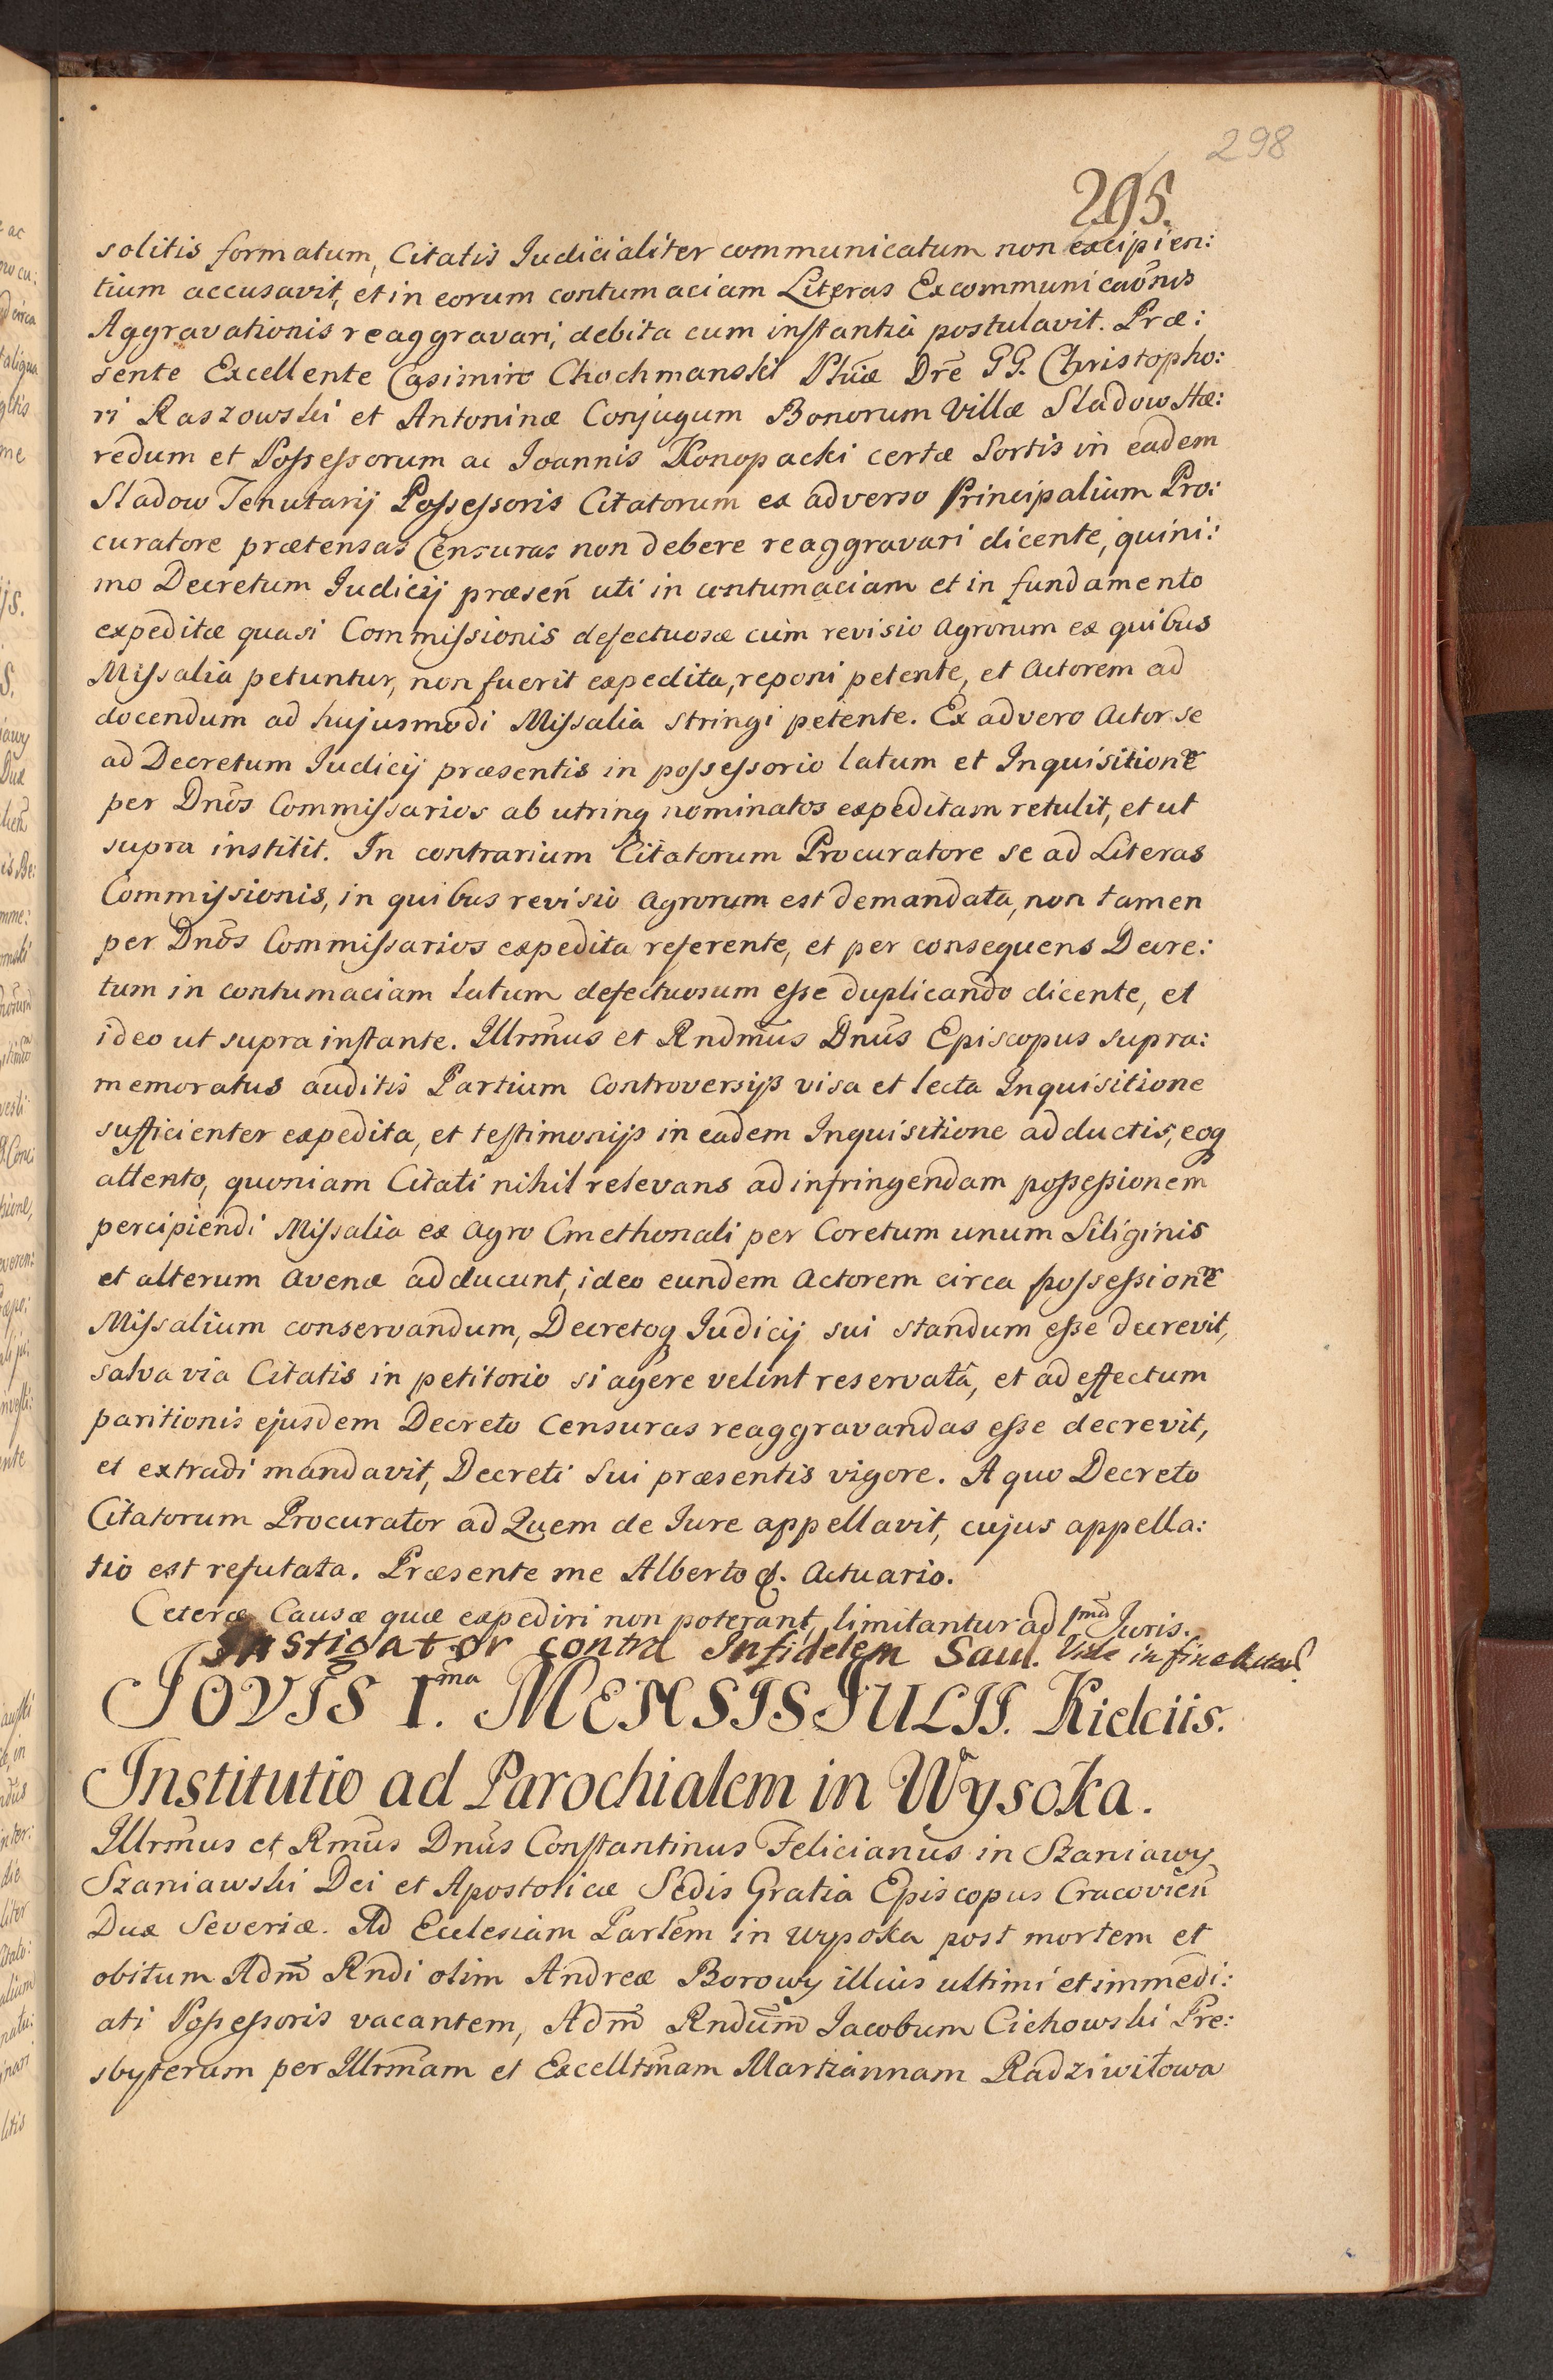 298
295.
solitis formatum, Citatis Judicialiter communicatum non excipien:
tium accusavit, et in eorum contumaciam Literas Excommunicaõnis
Aggravationis reaggravari, debita cum instantia postulavit. Præ:
sente Excellente Casimiro Chochmanski Phiæ Dre GG. Christopho:
ri Raszowski et Antoninæ Conjugum Bonorum Villæ Sladow Hæ:
redum et Possessorum ac Joannis Konopacki certæ Sortis in eadem
Sladow Tenutarij Possessoris Citatorum ex adverso Principalium Pro:
curatore prætensas Censuras non debere reaggravari dicente, quini:
mo Decretum Judicij præsen̄ uti in contumaciam et in fundamento
expeditæ quasi Commissionis defectuosæ cum revisio Agrorum ex quibus
Missalia petuntur, non fuerit expedita, reponi petente, et Actorem ad
docendum ad hujusmodi Missalia stringi petente. Ex advero Actor se
ad Decretum Judicij præsentis in possessorio latum et Inquisitionẽ
per Dnõs Commissarios ab utrinq nominatos expeditam retulit, et ut
supra institit. In contrarium Citatorum Procuratore se ad Literas
Commissionis, in quibus revisio Agrorum est demandata, non tamen
per Dnõs Commissarios expedita referente, et per consequens Decre:
tum in contumaciam latum defectuosum esse duplicando dicente, et
ideo ut supra instante. Illrm̃us et Rndm̃us Dnũs Episcopus supra:
memoratus auditis Partium Controversijs visa et lecta Inquisitione
sufficienter expedita, et testimonijs in eadem Inquisitione adductis, eoq
attento, quoniam Citati nihil relevans ad infringendam possessionem
percipiendi Missalia ex Agro Cmethonali per Coretum unum Siliginis
et alterum Avenæ adducunt, ideo eundem Actorem circa possessionẽ
Missalium conservandum, Decretoq Judicij sui standum esse decrevit,
salva via Citatis in petitorio si agere velint reservatâ, et ad effectum
paritionis ejusdem Decreto Censuras reaggravandas esse decrevit,
et extradi mandavit, Decreti Sui præsentis vigore. A quo Decreto
Citatorum Procurator ad Quem de Jure appellavit, cujus appella:
tio est refutata. Præsente me Alberto Actuario.
Ceteræ Causæ quæ expediri non poterant, limitantur ad Juris.
Instigator contra Infidelem Saul. Vide in fine
JOVIS I.ma MENSIS JULII. Kielciis.
Institutio ad Parochialem in Wysoka.
Illrm̃us et Rmũs Dnũs Constantinus Felicianus in Szaniawy
Szaniawski Dei et Apostolicæ Sedis Gratia Episcopus Cracovien̄
Dux Severiæ. Ad Ecclesiam Parlẽm in Wysoka post mortem et
obitum Adm̃ Rndi olim Andreæ Borowy illius ultimi et immedi:
ati Possessoris vacantem, Adm̃ Rndũm Jacobum Cichowski Pre:
sbyterum per Illrm̃am et Excelltm̃am Martiannam Radziwiłowa